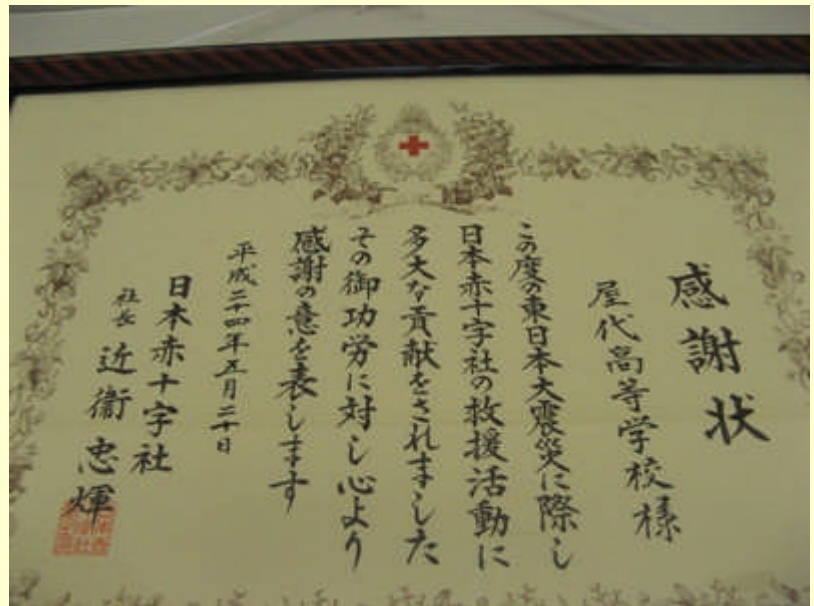 感謝状
屋代高等学校様
この度の東日本大震災に際し
日本赤十字社の救援活動に
多大な貢献をされました
その御功労に対し心より
感謝の意を表します
平成二十四年五月二十日
日本赤十字社
社長 近衞忠煇